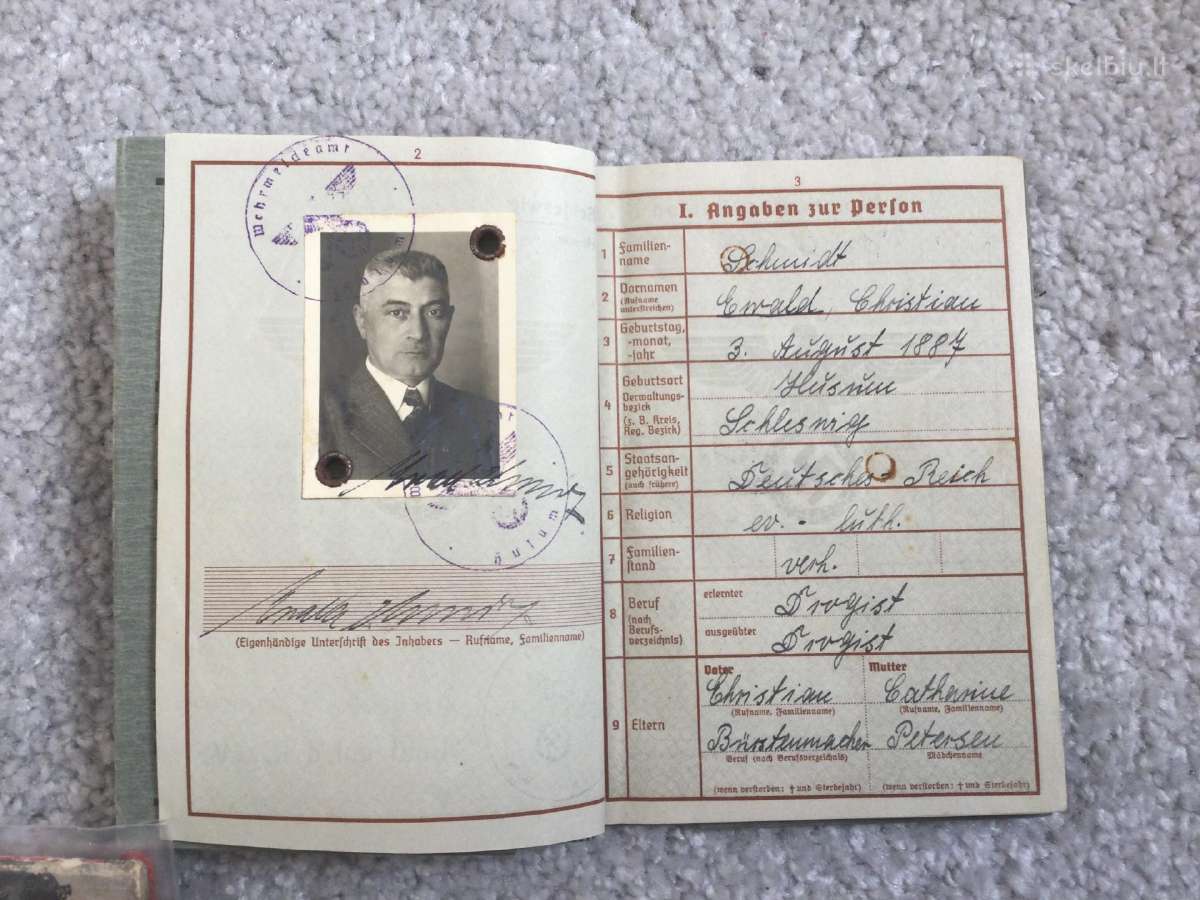 skelbiu.lt
2
Wehrmeldeamt
Husum
(Eigenhändige Unterschrift des Inhabers — Rufname, Familienname)
3
I. Angaben zur Person
1 Familien-
name
Schmidt
2 Vornamen
(Rufname
unterstreichen)
Ewald, Christian
3 Geburtstag,
-monat,
-jahr
3. August 1887
4 Geburtsort
Verwaltungs-
bezirk
(z. B. Kreis,
Reg. Bezirk)
Husum
Schleswig
5 Staatsan-
gehörigkeit
(auch frühere)
Deutsches Reich
6 Religion
ev. - luth.
7 Familien-
stand
verh.
8 Beruf
(nach
Berufs-
verzeichnis)
erlernter
Drogist
ausgeübter
Drogist
9 Eltern
Vater Mutter
Christian Catharine
(Rufname, Familienname) (Rufname, Familienname)
Bürstenmacher Petersen
Beruf (nach Berufsverzeichnis) Mädchenname
(wenn verstorben: † und Sterbejahr) (wenn verstorben: † und Sterbejahr)